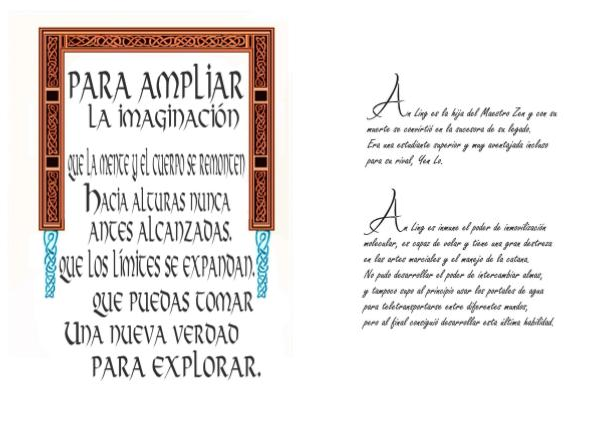 PARA AMPLIAR
LA IMAGINACIÓN
QUE LA MENTE Y EL CUERPO SE REMONTEN
HACIA ALTURAS NUNCA
ANTES ALCANZADAS.
QUE LOS LÍMITES SE EXPANDAN.
QUE PUEDAS TOMAR
UNA NUEVA VERDAD
PARA EXPLORAR.
An Ling es la hija del Maestro Zen y con su
muerte se convirtió en la sucesora de su legado.
Era una estudiante superior y muy aventajada incluso
para su rival, Yen Lo.
An Ling es inmune el poder de inmovilización
molecular, es capaz de volar y tiene una gran destreza
en las artes marciales y el manejo de la catana.
No pudo desarrollar el poder de intercambiar almas,
y tampoco supo al principio usar los portales de agua
para teletransportarse entre diferentes mundos,
pero al final consiguió desarrollar esta última habilidad.